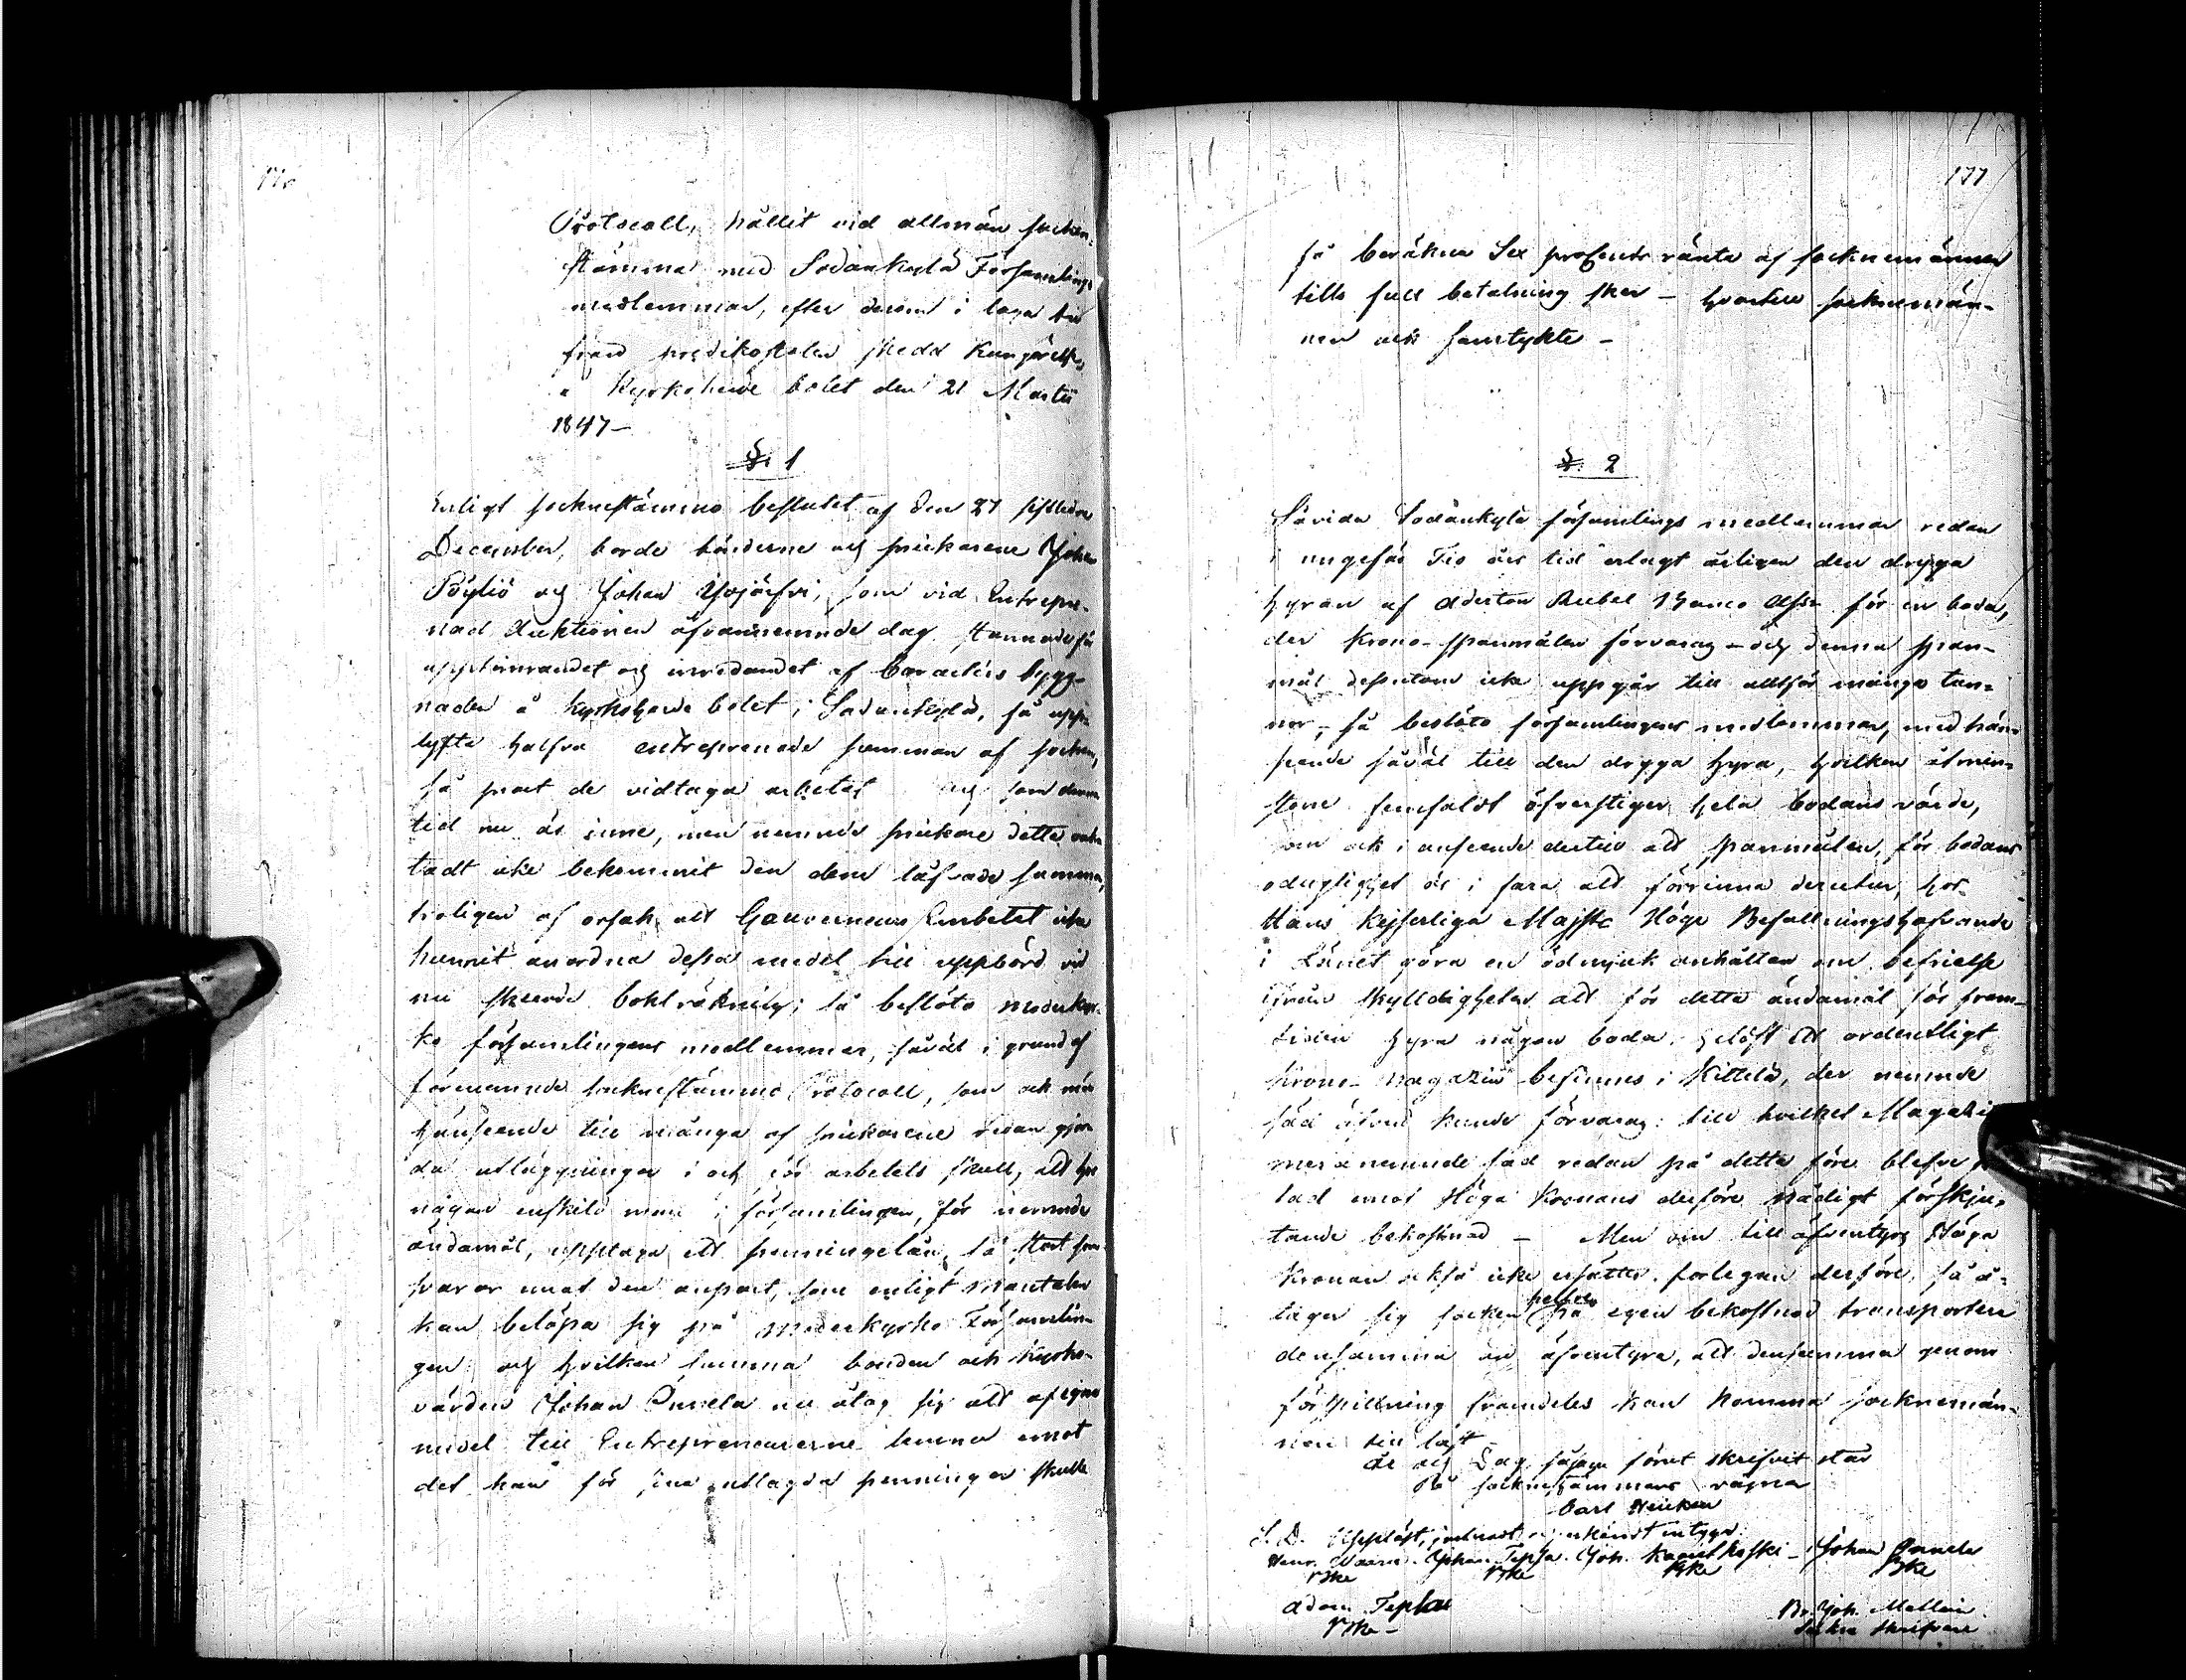 176
Protocoll, hållit vid allmän sochen-
stämma med Sodankylä Församlings
medlemmar, efter derom i laga tid
från predikostolen skedd kungörelse,
å Kyrkoherde bolet den 21 Martii
1847 —
§ 1
Enligt socknestämmo beslutet af den 27 sistledne
December, borde bönderne och snickarene Johan
Pöyliö och Johan Yljärfvi, som vid Entrepre-
nad Auktionen ofvannemnde dag stannade för
upptimrandet och inredandet af Caracters bygg-
naden å kyrkoherde bolet i Sodankylä, få upp-
lyfta halfva entreprenade summan af socknen,
så snart de vidtaga arbetet och som denna
tid nu är inne, men nemnde snickare detta
tadt icke bekommit den dem låfvade summa,
troligen af orsak att Gouverneurs Embetet icke
hunnit anordna dessa medel till uppbörd vid
nu skeende bokhräkning; så beslöto moderkyr-
ko församlingens medlemmar, såväl i grund af
förenemnde sockne stämmo Protocoll, som ock med
hänseende till många af snickarene redan gjor-
da utläggningar i och för arbetets skull, att hos
någon enskild man i församlingen, för nemnde
ändamål, upptaga ett penningelån, så stort som
svarar mot den anpart, som enligt mantalen
kan belöpa sig på moderkyrko Församlin-
gen och hvilken summa bonden och kyrko-
värden Johan Onnela nu åtog sig att af egna
medel till Entrepreneurerne lemna emot
det han för sina utlagda penningar skulle
177
få beräkna Sex proCents ränta af socknemännen
tills full betalning sker — hvartill socknemän-
nen ock samtykte —
§ 2
Såvida Sodankylä församlings medlemmar redan
i ungefär Tio års tid erlagt årligen den dryga
hyran af Aderton Rubel Banco Assr för en boda,
der Krono-spanmålen förvaras — och denna span-
mål dessutom icke uppgår till alltför många tun-
nor, så beslöto församlingens medlemmar, med hän-
seende såväl till den dryga hyra, hvilken åtmin-
stone femfaldt öfverstiger hela bodans värde,
som ock i anseende dertill att spanmålen, för bodans
oduglighet är i fara att förrinna derutur, hos
Hans Kejserliga Majsts Höge Befallningshafvande
i Länet göra en ödmjuk anhållan om befrielse
ifrån skylldigheten att för detta ändamål för fram-
tiden hyra någon boda, helst ett ordentligt
Krono-magazin befinnes i Kittelä, der nemnde
säd äfven kunde förvaras; till hvilket Magazin
meranemnde säd redan på detta före blefve
tad emot Höga Kronans derföre nådigt förskju-
tande bekostnad — Men om till äfventyrs Höga
Kronan också icke ersätter forlegan derföre, så å-
tager sig socken hellre på egen bekostnad transportera
densamma än äfventyra, att densamma genom
förspillning framdeles kan komma socknemän-
nen till last —
År och Dag, såsom förut skrifvit står
På sockne stämmans vägnar
Carl Heickell
S. D. Uppläst, justerat och erkändt intyga:
Henr. Waara Johan Tepsa Joh. Kaarretkoski — Johan Onnela
Bmke Bmke Bmke Bmke
Adam Tepsa
Bmke —
Br. Joh. Mellin
Sockne skrifvare